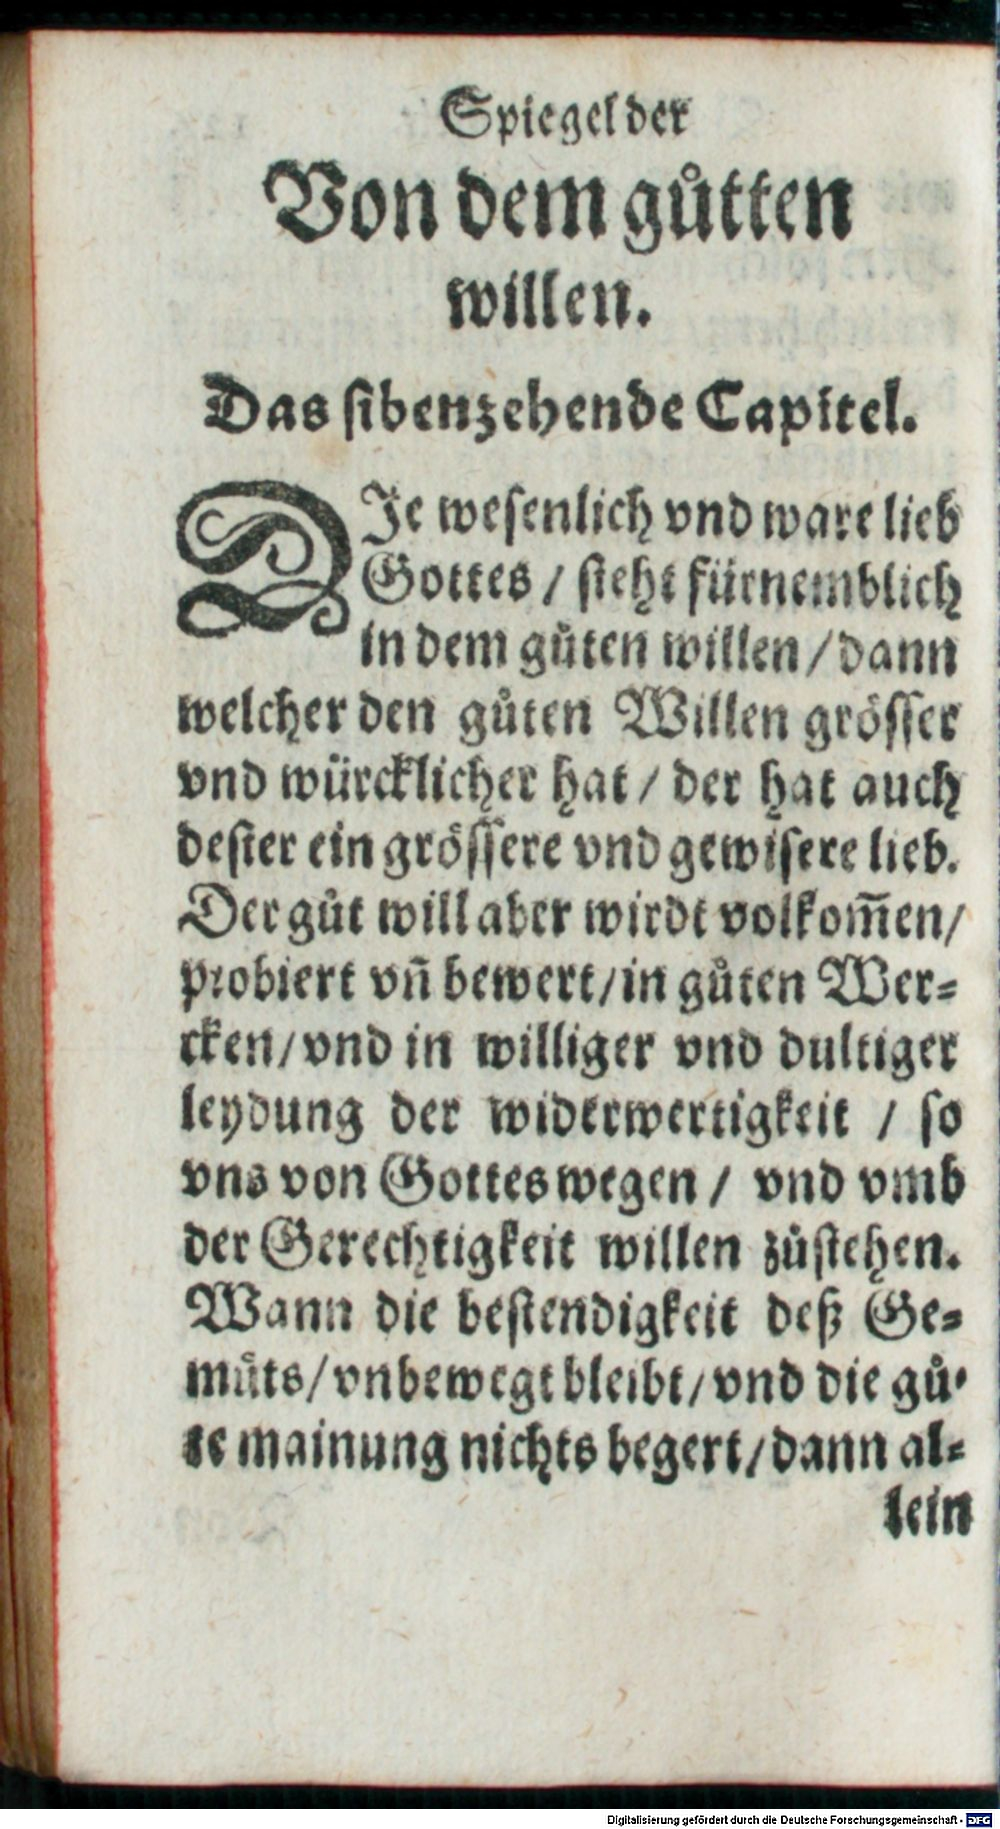 Spiegel der
Von dem gůtten
willen.
Das sibenzehende Capitel.
DJe wesenlich vnd ware lieb
Gottes / steht fürnemblich
in dem gůten willen / dann
welcher den gůten Willen grösser
vnd würcklicher hat / der hat auch
dester ein grössere vnd gewisere lieb.
Der gůt will aber wirdt volkom̃en /
probiert vñ bewert / in gůten Wer=
cken / vnd in williger vnd dultiger
leydung der widerwertigkeit / so
vns von Gottes wegen / vnd vmb
der Gerechtigkeit willen zůstehen.
Wann die bestendigkeit deß Ge=
můts / vnbewegt bleibt / vnd die gů=
te mainung nichts begert / dann al=
lein
Digitalisierung gefördert durch die Deutsche Forschungsgemeinschaft - DFG